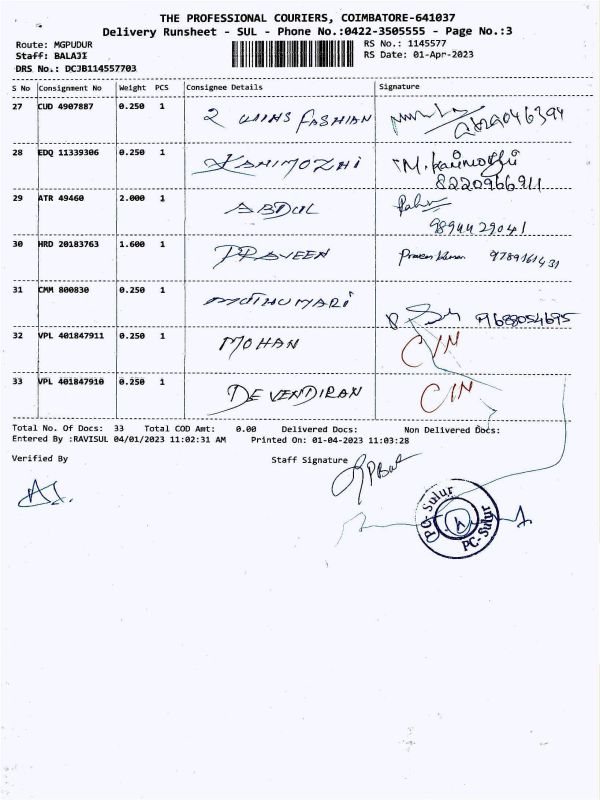 THE PROFESSIONAL COURIERS, COIMBATORE-641037
Delivery Runsheet - SUL - Phone No.:0422-3505555 - Page No.:3
Route: MGPUDUR RS No.: 1145577
Staff: BALAJI RS Date: 01-Apr-2023
DRS No.: DCJB114557703
S No Consignment No Weight PCS Consignee Details Signature
27 CUD 4907887 0.250 1 2 WINS FASHIAN
28 EDQ 11339306 0.250 1 KANIMOZHI M.
8220966911
29 ATR 49460 2.000 1 ABDUL
9894429041
30 HRD 20183763 1.600 1 PRAVEEN Praveen Kumar 9789161431
31 CMM 800830 0.250 1 MUTHUMARI 9688054695
32 VPL 401847911 0.250 1 MOHAN C/N
33 VPL 401847910 0.250 1 DEVENDIRAN C/N
Total No. Of Docs: 33 Total COD Amt: 0.00 Delivered Docs: Non Delivered Docs:
Entered By :RAVISUL 04/01/2023 11:02:31 AM Printed On: 01-04-2023 11:03:28
Verified By Staff Signature
PC-Sulur
PC-Sulur